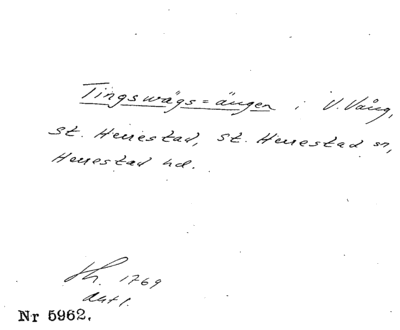 Tingswägs=ängen i V. Vång,
St. Herrestad, St. Herrestad sn,
Herrestad hd.
1769
Nr 5962.